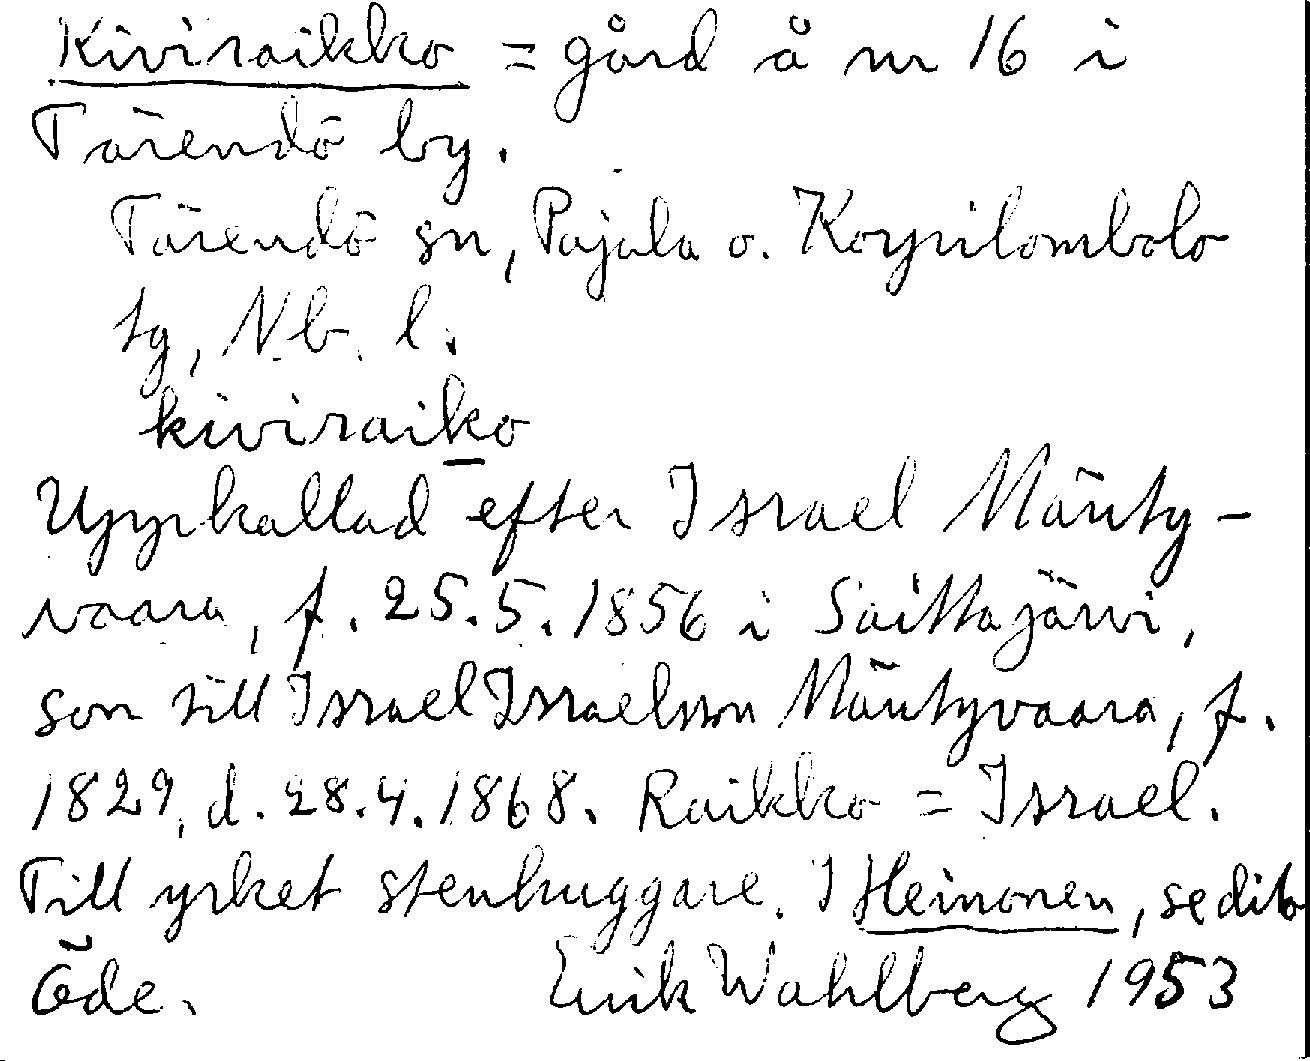 Kiviraikko = gård å nr 16 i
Tärendö by.
Tärendö sn, Pajala o. Korpilombolo
tg, Nb. l.
kiviraiko
Uppkallad efter Israel Mänty-
vaara, f. 25.5.1856 i Saittajärvi,
son till Israel Israelsson Mäntyvaara, f.
1829, d. 28.4.1868. Raikko = Israel.
Till yrket stenhuggare. I Heinonen, se dito
Öde. Erik Wahlberg 1953